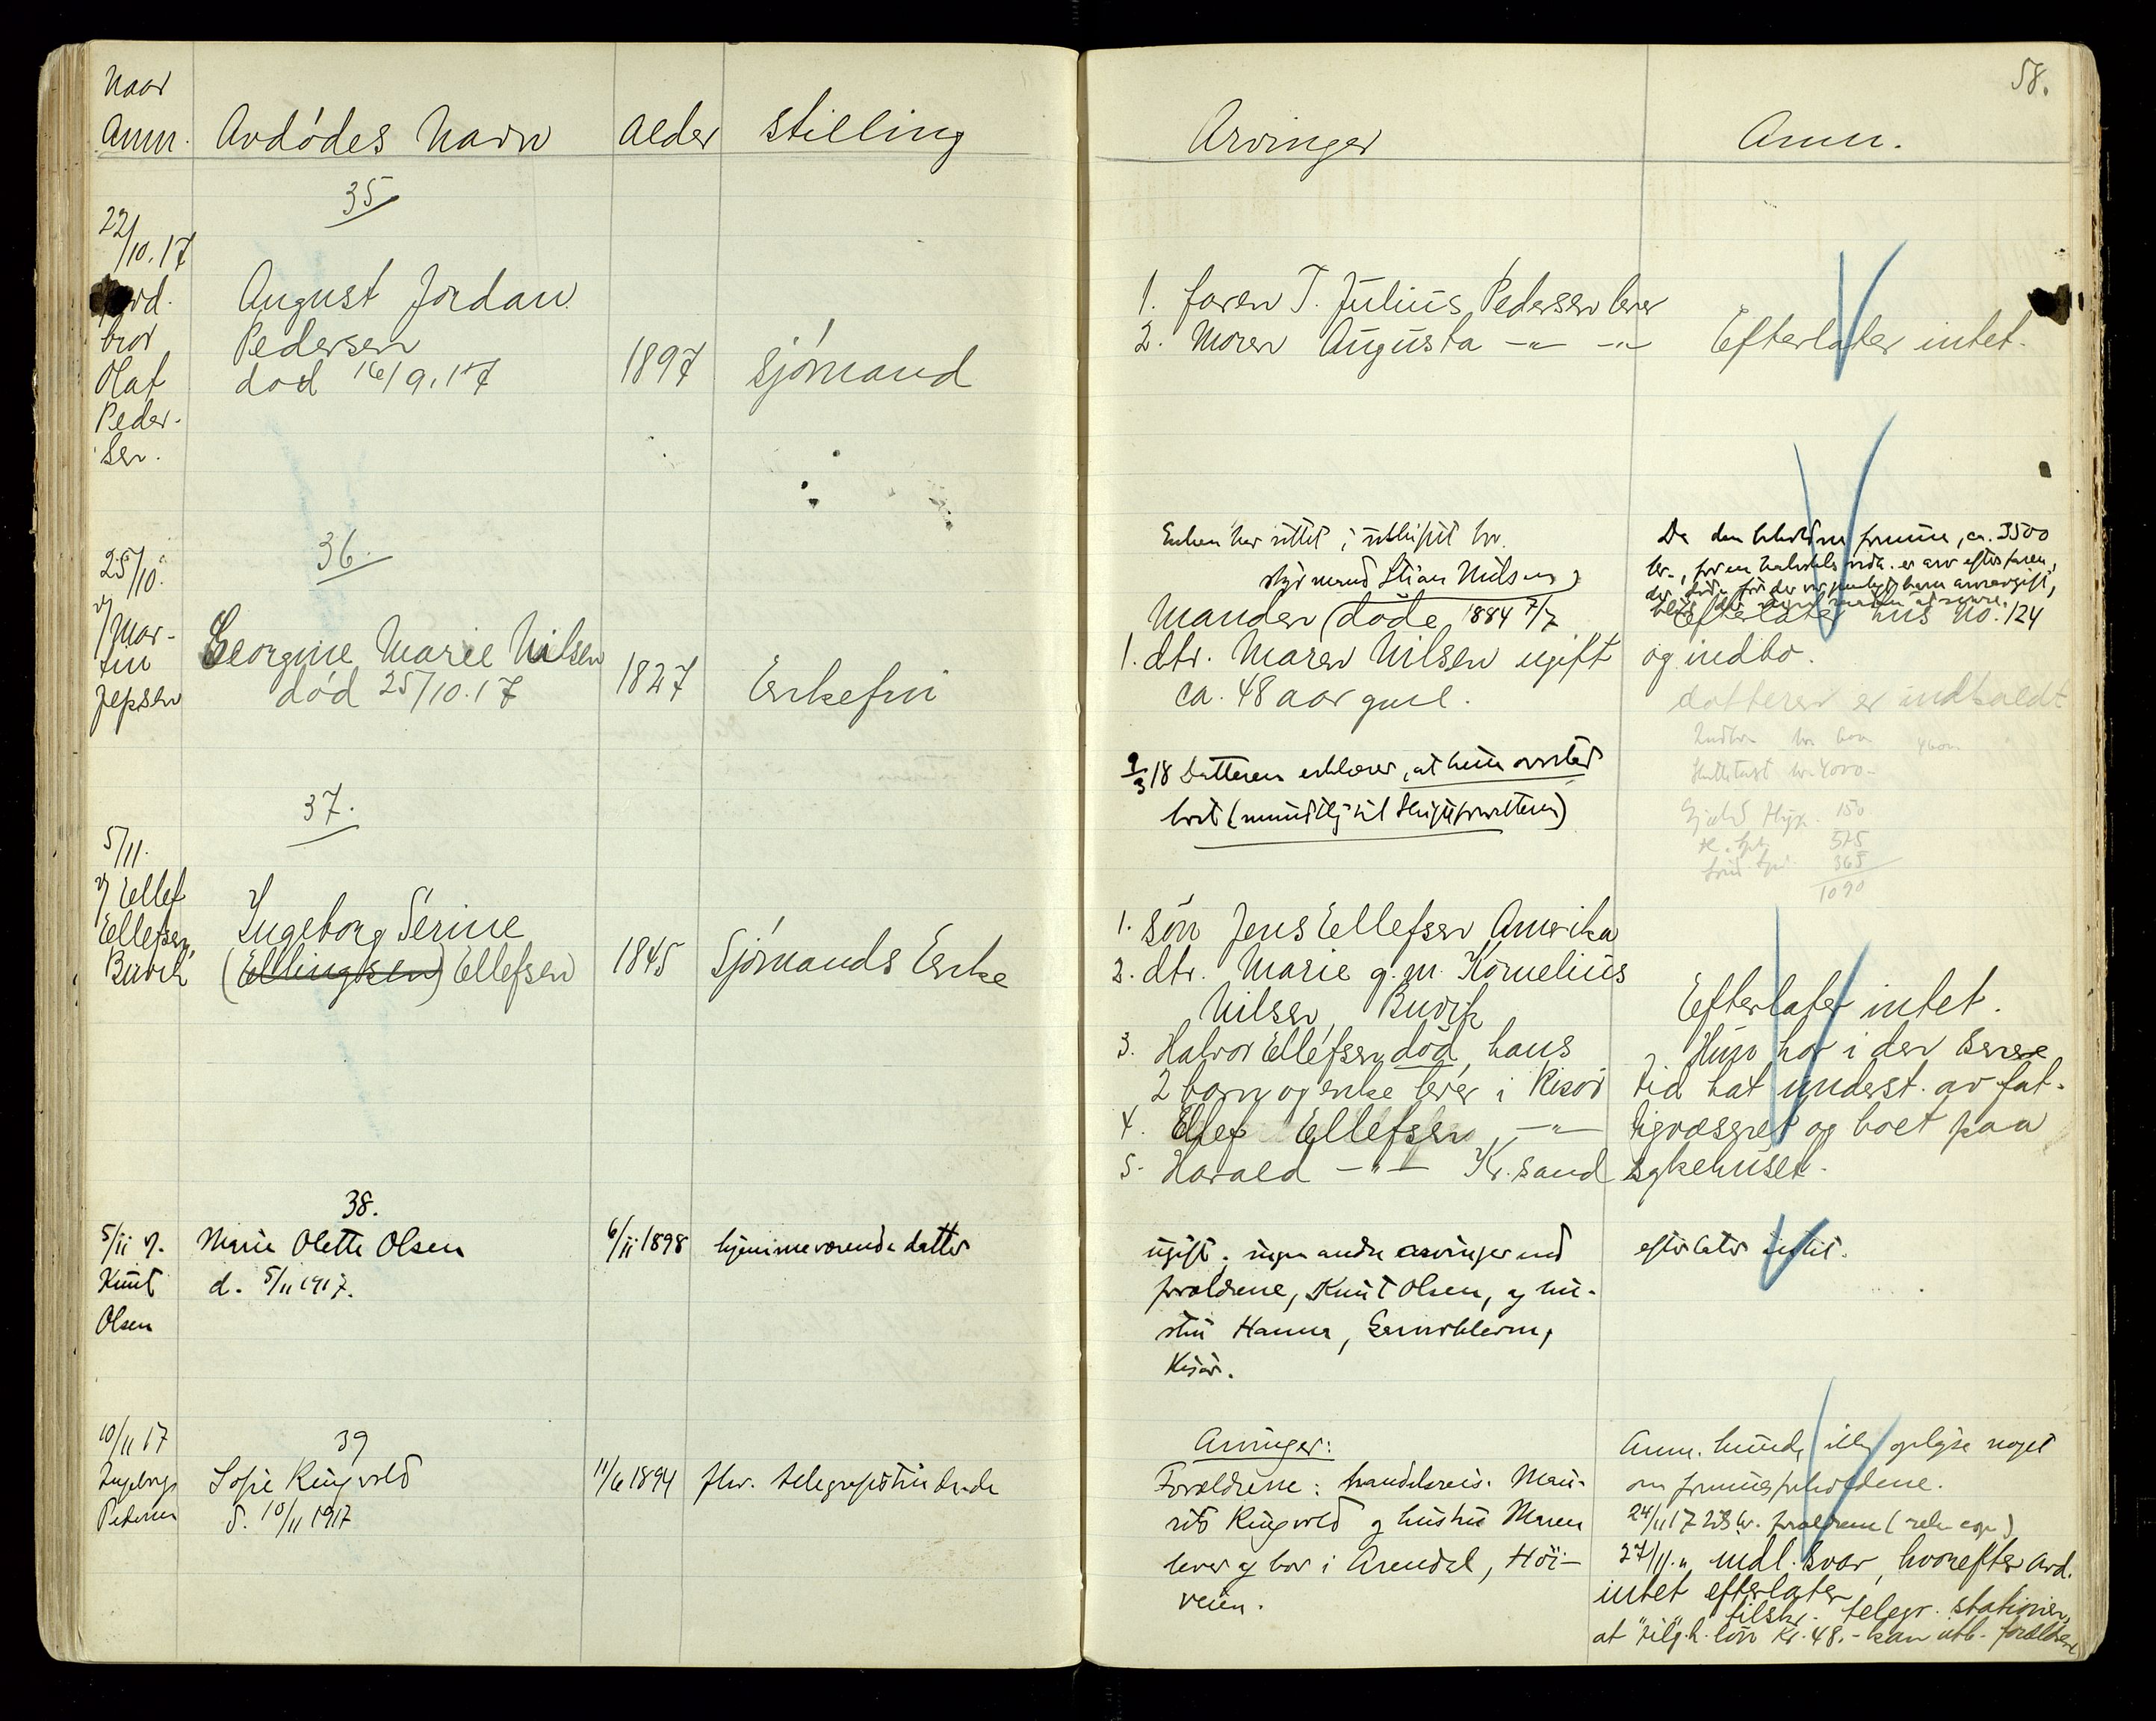 58.
Naar
Anm. Avdødes Navn Alder Stilling Arvinger Anm.
35
22/10.17
August Jordan
Pedersen
død 16/9.17
bror
Olaf
Peder-
sen.
1897 Sjømand
1. faren T. Julius Pedersen lever
2. Moren Augusta -"- -"-
Efterlater intet.
36.
25/10.
v/ Mar-
tin
Jepsen
Georgine Marie Nilsen
død 25/10.17
1827 Enkefru
styrmand Stian Nilsen
Manden døde 1884 7/7
1. dtr. Maren Nilsen ugift
ca. 48 aar gml.
9/3 18 Datteren erklærer, at hun
(mundtlig til
ca. 3500
Efterlater hus No. 124
og indbo.
datteren er indkaldt
150
525
365
1090
37.
5/11.
v/ Ellef
Ellefsen,
Buvik
Ingeborg Serine
(Ellingsen) Ellefsen
1845 Sjømands Enke
1. Søn Jens Ellefsen Amerika
2. dtr. Marie g.m. Kornelius
Nilsen, Buvik
3. Halvor Ellefsen, død, hans
2 barn og enke lever i Risør
4. Ellef Ellefsen, -"-
5. Harald -"- Kr.sand
Efterlater intet.
Hun har i den senere
tid hat underst. av fat-
tigvæsenet og boet paa
sykehuset.
38.
5/11 v.
Knut
Olsen
Marie Olette Olsen
d. 5/11 1917.
6/11 1898 hjemmeværende datter
ugift, ingen andre arvinger end
forældrene, Knut Olsen, og hu-
stru Hanna,
Risør.
efterlater intet.
39
10/11 17
Ingeborg
Pedersen
Sofie Ringvold
d. 10/11 1917
11/6 1894 fhv. telegrafistinde
Arvinger:
Forældrene: handelsreis. Mau-
rits Ringvold og hustru Maren
lever og bor i Arendal, Höi-
veien.
Anm. kunde ikke oplyse noget
om formuesforholdene.
24/11 17 forældrene
27/11." mdl. svar, hvorefter avd.
intet efterlater
tilskr. telegr. stationen,
at tilg.h. løn Kr. 48.- kan utb. forældrene